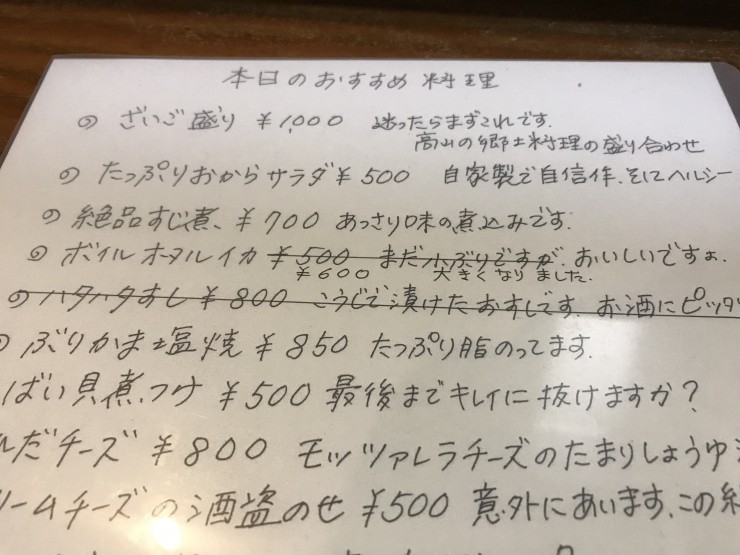 本日のおすすめ料理
の ざいご盛り ¥1,000 迷ったらまずこれです。
高山の郷土料理の盛り合わせ
の たっぷりおからサラダ ¥500 自家製で自信作、そしてヘルシー
の 絶品すじ煮、¥700 あっさり味の煮込みです。
の ボイルホタルイカ ¥500 まだ小ぶりですが、おいしいですょ。
¥600 大きくなりました。
の ハタハタすし ¥800 こうじで漬けたおすしです。お酒にピッタ
の ぶりかま塩焼 ¥850 たっぷり脂のってます。
ばい貝煮つけ ¥500 最後までキレイに抜けますか?
んだチーズ ¥800 モッツァレラチーズのたまりしょうゆ
リームチーズの酒盗のせ ¥500 意外にあいます、この